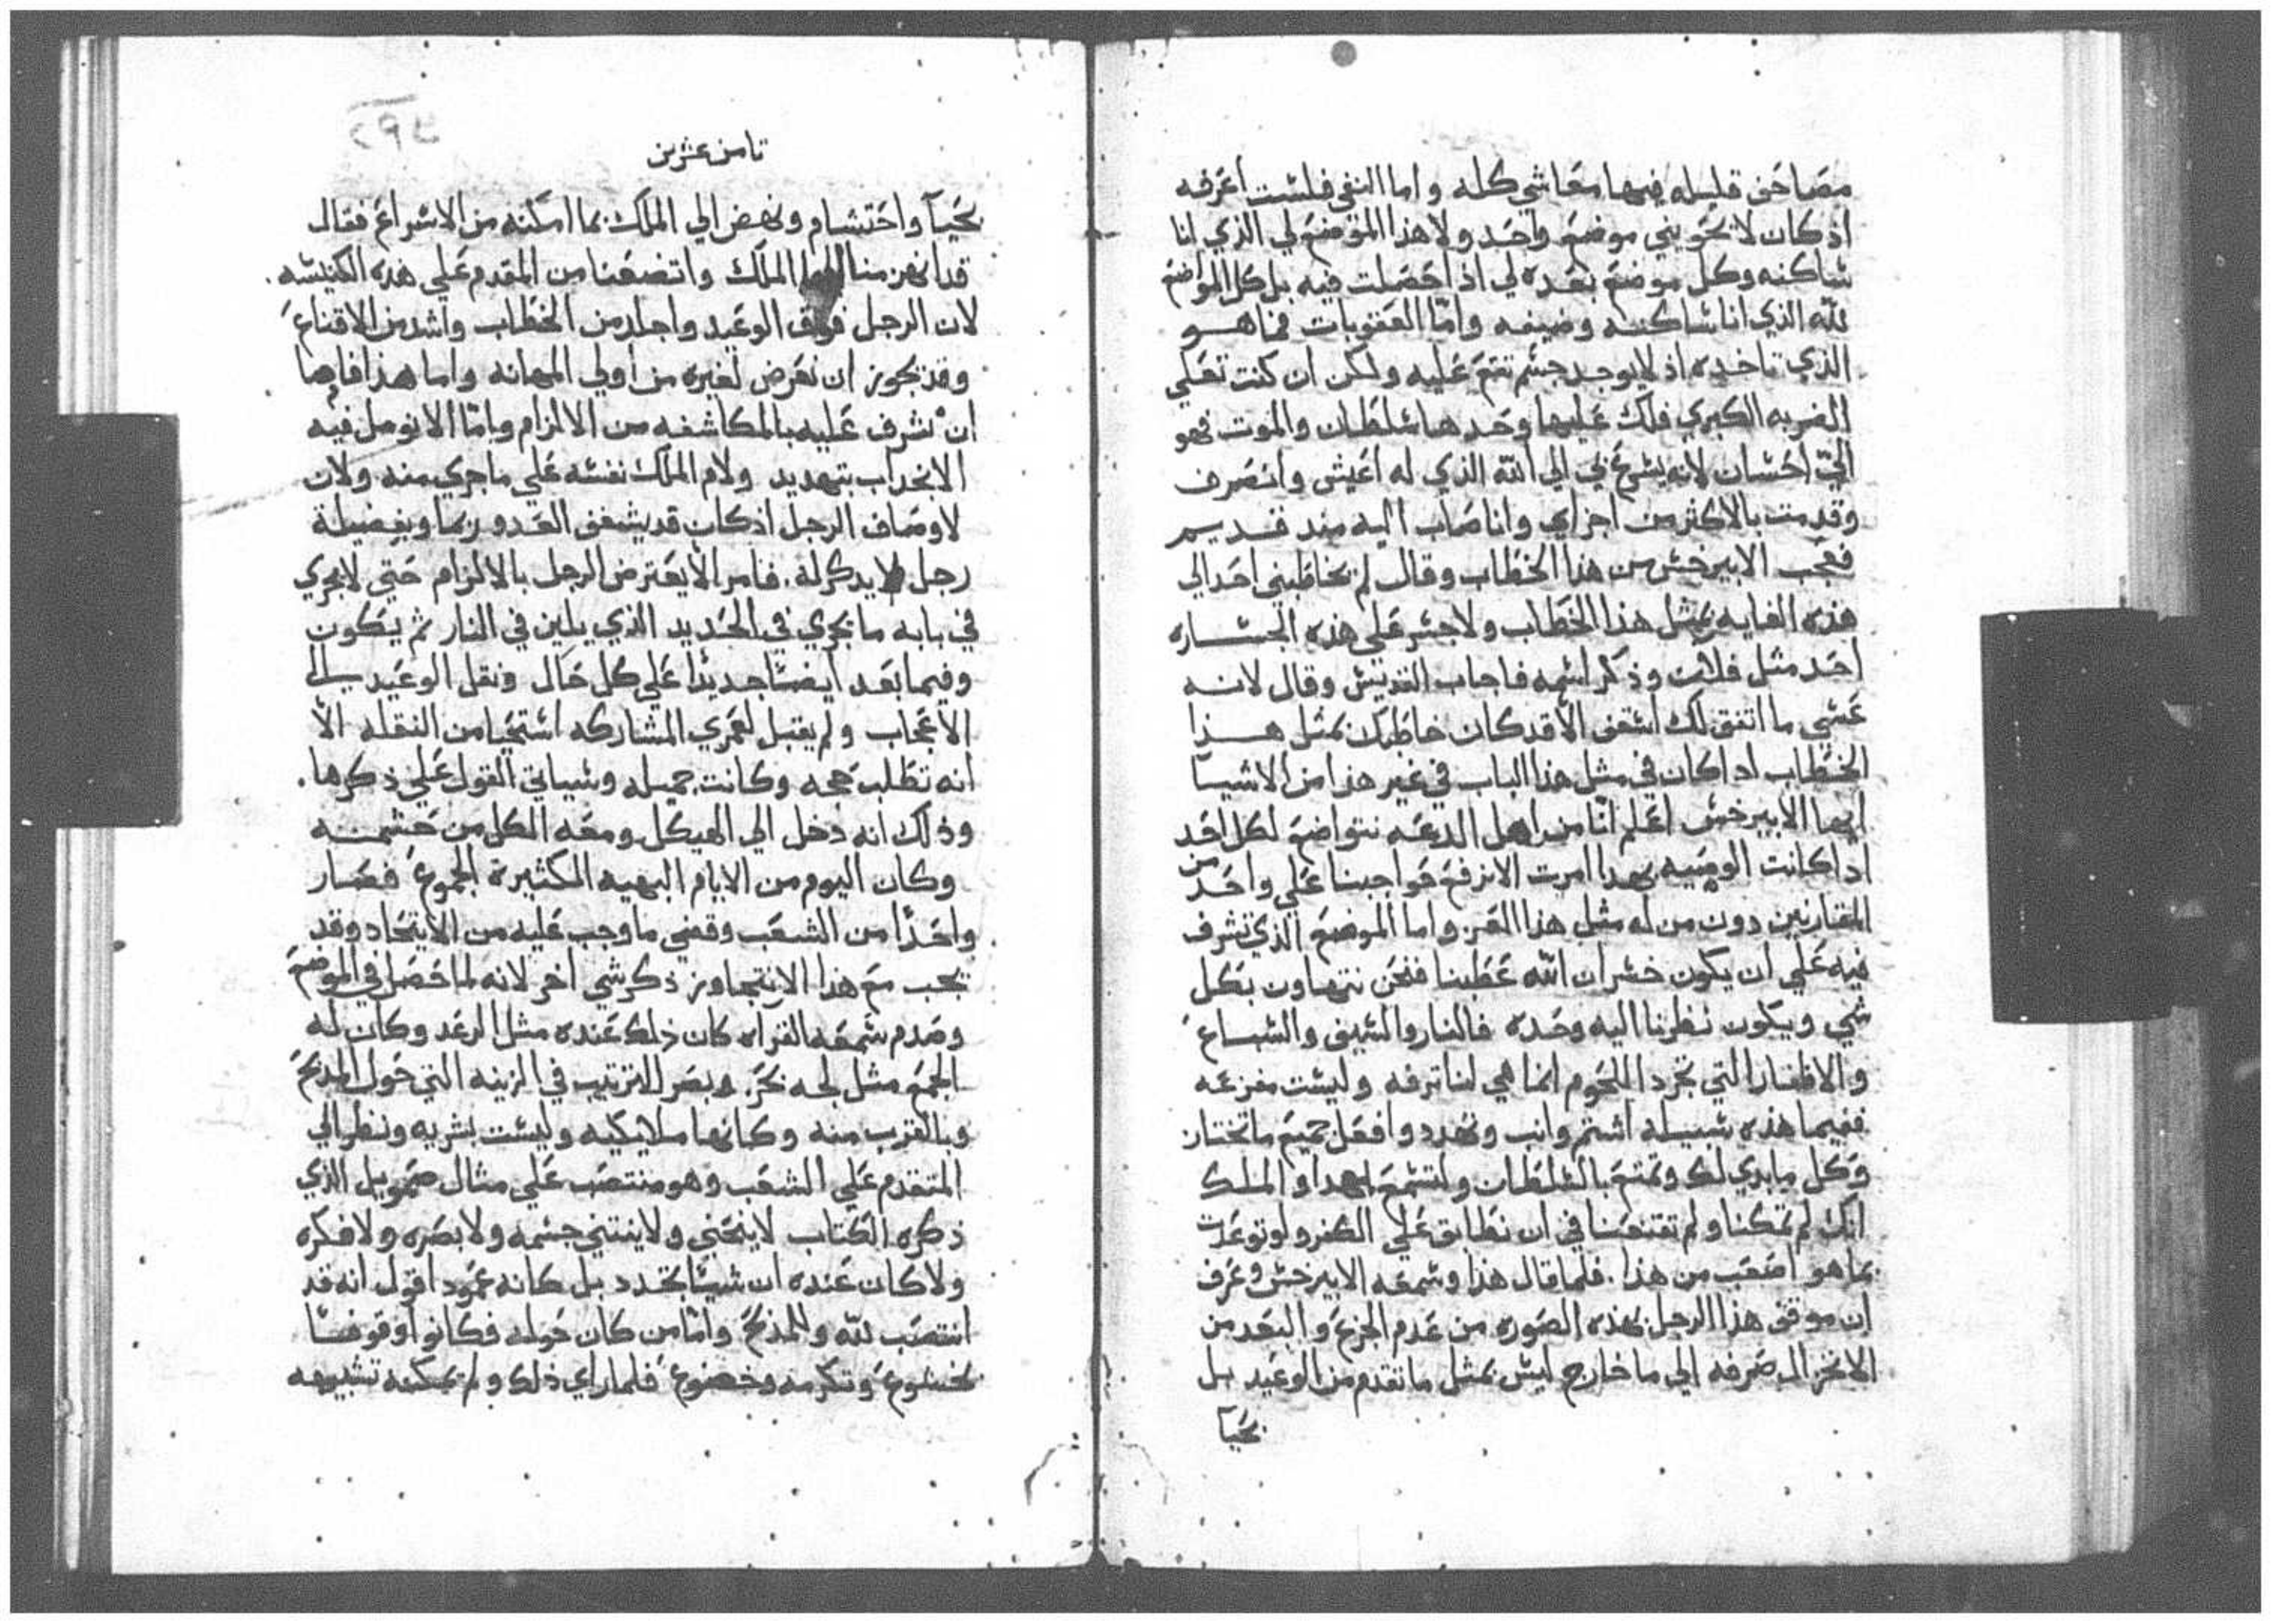 مصاحف قليله فيها معاشي كله واما النفي فلست اعرفه
اذ كان لا يحويني موضع واحد ولا هذا الموضع لي الذي انا
ساكنه وكل موضع بعده لي اذا حصلت فيه بل كل المواضع
لله الذي انا ساكنه وضيفه وامّا العقوبات فما هو
الذي تاخده اذ لا يوجد جسم تقع عليه ولكن ان كنت تعني
الضربه الكبري فلك عليها وحدها سلطان والموت فهو
اليّ احسان لانه يسرع بي الي الله الذي له اعيش واتصرف
وقد مت بالاكثر من اجزاي وانا صاب اليه مند قديم
فعجب الابيرخس من هذا الخطاب وقال لم يخاطبني احد الي
هذه الغايه بمثل هذا الخطاب ولا جسر علي هذه الجساره
احد مثل فلان وذكر اسمه فاجاب القديس وقال لانه
عسي ما اتفق لك اسقف الا قد كان خاطبك بمثل هذا
الخطاب ادا كان في مثل هذا الباب في غير هذا من الاشيآ
ايها الابيرخس اعلم انّا من اهل الدعه نتواضع لكل احد
اداكانت الوصيه بهدا امرت الا نرفع حواجبنا علي واحد من
المقاربين دون من له مثل هذا العز واما الموضع الذي نشرف
فيه علي ان يكون خسران الله عطبنا فنحن نتهاون بكل
شي ويكون نظرنا اليه وحده فالنار والسيف والسباع
والاظفار التي تجرد اللحوم انما هي لنا ترفه وليست مفزعه
ففيما هذه سبيله اشتم وانب وتهدد وافعل جميع ما تختار
وكل ما بدي لك وتمتع بالسلطان وليسمع بهدا والملك
انك لم تمكنا ولم تقنعنا في ان نطابق علي الكفر ولو توعدت
بما هو اصعب من هذا. فلما قال هذا وسمعه الابيرخس وعرف
ان موقف هذا الرجل بهذه الصوره من عدم الجزع والبعد من
الانخزال صرفه الي ما خارج ليس بمثل ما تقدم من الوعيد بل
بحيآ
ثامن عشرين
بحيآ واحتشام ونهض الي الملك بما امكنه من الاسراع فقال
قد انهزمنا ايها الملك واتضعنا من المقدم علي هذه الكنيسه.
لان الرجل فوق الوعيد واجلد من الخطاب واشد من الاقناع
وقد يجوز ان نعرض لغيره من اولي المهانه واما هذا فاما
ان نشرف عليه بالمكاشفه من الالزام وامّا الا نومل فيه
الانجداب بتهديد ولام الملك نفسه علي ما جري منه ولان
لاوصاف الرجل اذ كان قد يشغف العدو ربما وبفضيلة
رجل لا يدكر له. فامر الا يعترض الرجل بالالزام حتي لا يجري
في بابه ما يجري في الحديد الذي يلين في النار ثم يكون
وفيما بعد ايضا حديدا علي كل حال ونقل الوعيد الي
الاعجاب ولم يقبل لعمري المشاركه استحيا من النقله الا
انه تطلب حجه وكانت جميله وسياتي القول علي ذكرها.
وذلك انه دخل الي الهيكل ومعه الكل من حشمه
وكان اليوم من الايام البهيه الكثيرة الجموع فصار
واحدًا من الشعب وقضي ما وجب عليه من الاتحاد وقد
يجب مع هذا الا يتجاوز ذكر شي اخر لانه لما حصل في الموضع
وصدم سمعه القراه كان ذلك عنده مثل الرعد وكان له
الجمع مثل لجه بحر. وبصر الترتيب في الزينه التي حول المدبح
وبالقرب منه وكانها ملايكيه وليست بشريه ونظر الي
المتقدم علي الشعب وهو منتصب علي مثال صمويل الذي
ذكره الكتاب لا ينحني ولا ينثني جسمه ولا بصره ولا فكره
ولا كان عنده ان شيئا يتجدد بل كانه عمود اقول انه قد
انتصب لله وللمذبح وامّا من كان حوله فكانوا وقوفًا
بخشوع وتكرمه وخضوع فلما راي ذلك ولم يمكنه تشبيهه